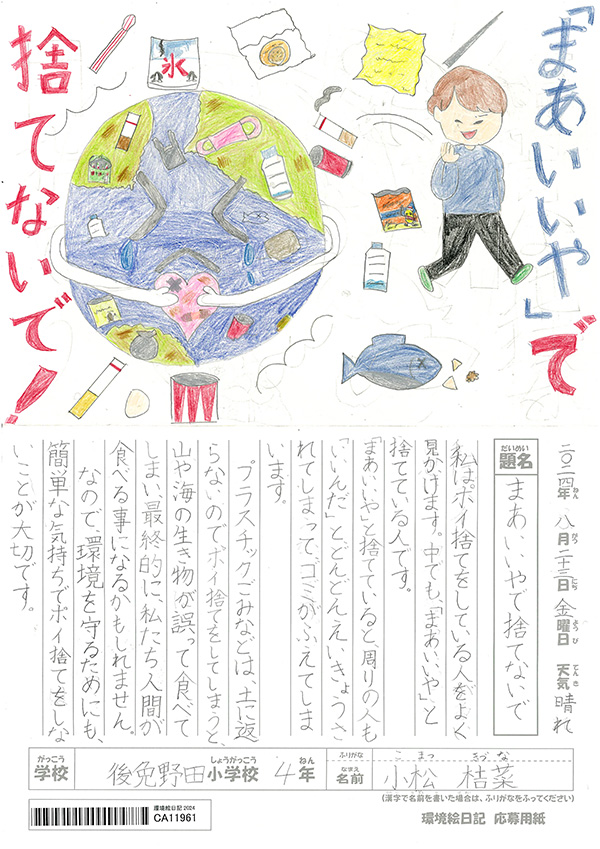 「まあいいや」で
捨てないで！
氷
二〇二四年 八月 二十三日 金曜日 天気 晴れ
ねん がつ にち ようび てんき
だいめい
題名
まあいいやで捨てないで
私はポイ捨てをしている人をよく
見かけます。中でも、「まあいいや」と
捨てている人です。
「まあいいや」と捨てていると、周りの人も
「いいんだ」とどんどんえいきょうさ
れてしまって、ゴミがふえてしま
います。
プラスチックごみなどは、土に返
らないのでポイ捨てをしてしまうと、
山や海の生き物が誤って食べて
しまい、最終的に、私たち人間が
食べる事になるかもしれません。
なので、環境を守るためにも、
簡単な気持ちでポイ捨てをしな
いことが大切です。
がっこう しょうがっこう ねん
学校 後免野田小学校 4年
ふりがな こまつ きづな
なまえ
名前 小松 桔菜
(漢字で名前を書いた場合は、ふりがなをふってください)
環境絵日記2024
CA11961
環境絵日記 応募用紙